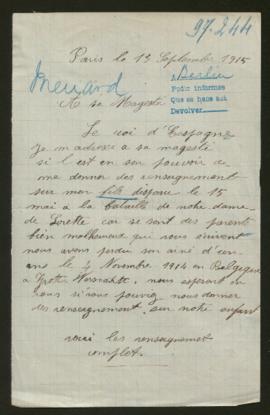 97-244
Paris le 13 Septembre 1915
Menard
A Berlin
Pedir informes
Que se hace así
Devolver
A sa Magesté
Le roi d'Espagne
Je m'adresse a sa magesté
si l'est en son pouvoir de
me donner des renseignement
sur mon fils disparu le 15
mai a la bataille de notre dame
de Lorette car se sont des parents
bien malheureux qui vous écrivent
nous avons perdu son ainé d'un
ans le 4 Novembre 1914 en Belgique
a nous esperont
nous si vous pouvez nous donner
des renseignement sur notre enfant
voici les renseignement
complet.